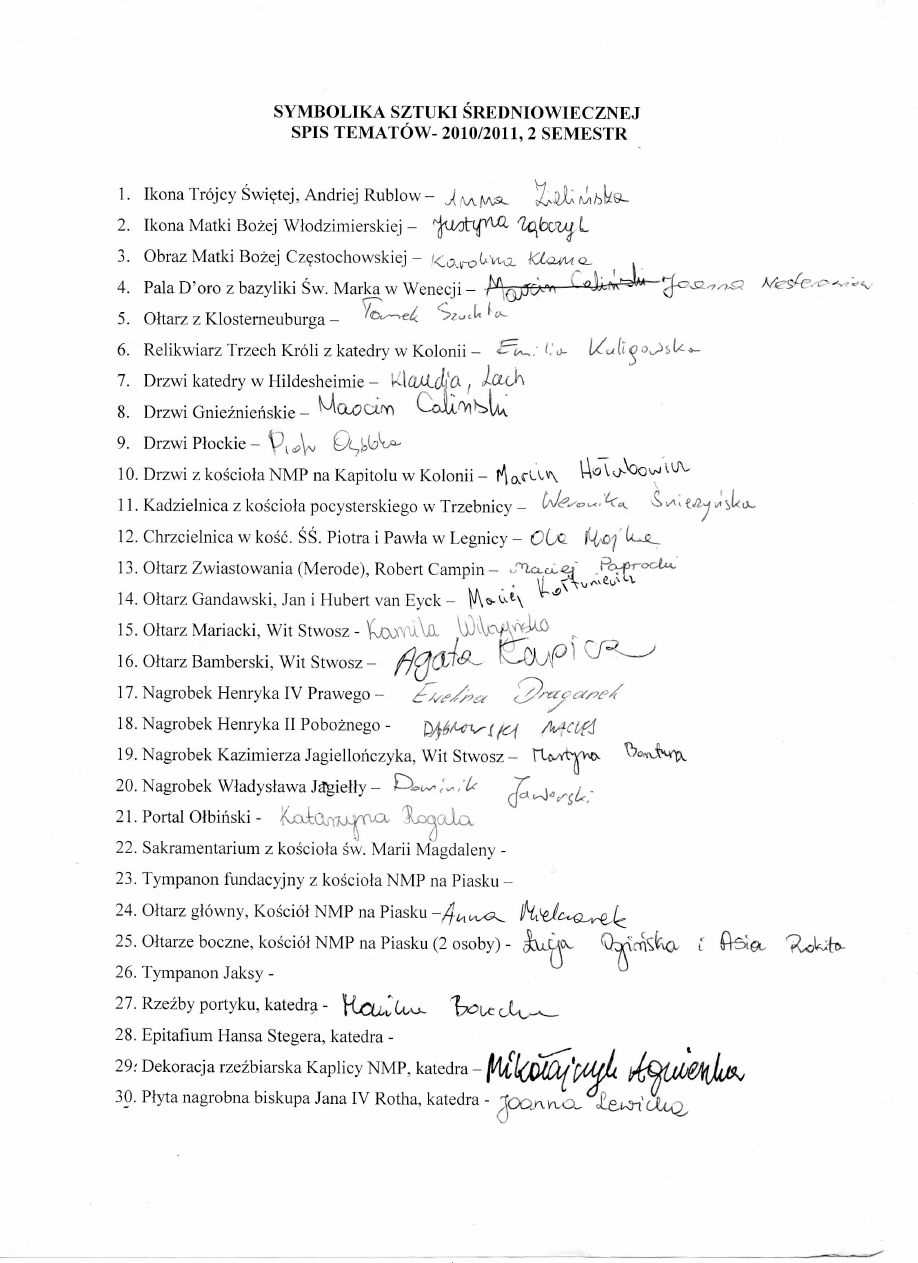 SYMBOLIKA SZTUKI ŚREDNIOWIECZNEJ
SPIS TEMATÓW- 2010/2011, 2 SEMESTR
1. Ikona Trójcy Świętej, Andriej Rublow – Anna Zielińska
2. Ikona Matki Bożej Włodzimierskiej – Justyna Ząbczyk
3. Obraz Matki Bożej Częstochowskiej – Karolina Klama
4. Pala D’oro z bazyliki Św. Marka w Wenecji – Marcin Caliński Joanna
5. Ołtarz z Klosterneuburga – Tomek Szuchta
6. Relikwiarz Trzech Króli z katedry w Kolonii – Emilia Kuligowska
7. Drzwi katedry w Hildesheimie – Klaudja, Lach
8. Drzwi Gnieźnieńskie – Marcin Caliński
9. Drzwi Płockie – Piotr
10. Drzwi z kościoła NMP na Kapitolu w Kolonii – Marcin Hołubowicz
11. Kadzielnica z kościoła pocysterskiego w Trzebnicy – Weronika Śnieżyńska
12. Chrzcielnica w kość. ŚŚ. Piotra i Pawła w Legnicy – Ola
13. Ołtarz Zwiastowania (Merode), Robert Campin – Maciej Paprocki
14. Ołtarz Gandawski, Jan i Hubert van Eyck – Maciej Kołtuniewicz
15. Ołtarz Mariacki, Wit Stwosz - Kamila
16. Ołtarz Bamberski, Wit Stwosz – Agata Kapica
17. Nagrobek Henryka IV Prawego – Ewelina Draganek
18. Nagrobek Henryka II Pobożnego - DĄBROWSKI MACIEJ
19. Nagrobek Kazimierza Jagiellończyka, Wit Stwosz – Martyna Bontura
20. Nagrobek Władysława Jagiełły – Dominik Jaworski
21. Portal Ołbiński - Katarzyna Rogala
22. Sakramentarium z kościoła św. Marii Magdaleny -
23. Tympanon fundacyjny z kościoła NMP na Piasku –
24. Ołtarz główny, Kościół NMP na Piasku – Anna Mielcarek
25. Ołtarze boczne, kościół NMP na Piasku (2 osoby) - Łucja Ogińska i Asia Rokita
26. Tympanon Jaksy -
27. Rzeźby portyku, katedra -
28. Epitafium Hansa Stegera, katedra -
29. Dekoracja rzeźbiarska Kaplicy NMP, katedra – Mikołajczyk Agnieszka
30. Płyta nagrobna biskupa Jana IV Rotha, katedra - Joanna Lewicka